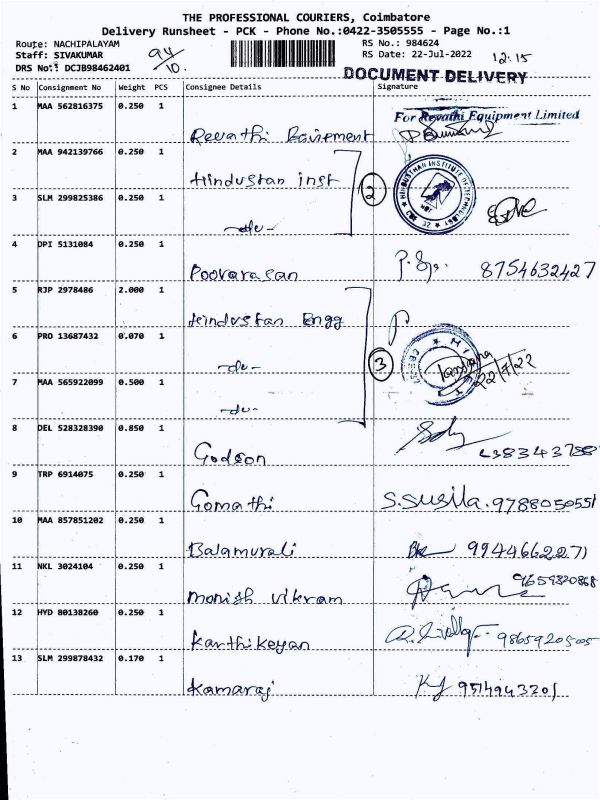 THE PROFESSIONAL COURIERS, Coimbatore
Delivery Runsheet - PCK - Phone No.:0422-3505555 - Page No.:1
Route: NACHIPALAYAM
Staff: SIVAKUMAR
DRS No.: DCJB98462401
94/10.
RS No.: 984624
RS Date: 22-Jul-2022
12:15
DOCUMENT DELIVERY
S No Consignment No Weight PCS Consignee Details Signature
1 MAA 562816375 0.250 1 Revathi Equipment For Revathi Equipment Limited
2 MAA 942139766 0.250 1 Hindustan inst 2
3 SLM 299825386 0.250 1 -do-
HINDUSTHAN INSTITUTE OF TECHNOLOGY
HIT
CBE 32
4 DPI 5131084 0.250 1 Poovarasan 8754632427
5 RJP 2978486 2.000 1 Hindustan Engg
6 PRO 13687432 0.070 1 -do- 3
22/7/22
7 MAA 565922099 0.500 1 -do-
8 DEL 528328390 0.850 1 Godson
9 TRP 6914075 0.250 1 Gomathi S.Susila. 9788050551
10 MAA 857851202 0.250 1 Balamurali 9944662271
11 NKL 3024104 0.250 1 Monish Vikram 9659820868
12 HYD 80138260 0.250 1 Karthikeyan 9865920505
13 SLM 299878432 0.170 1 Kamaraj KJ 9514943201